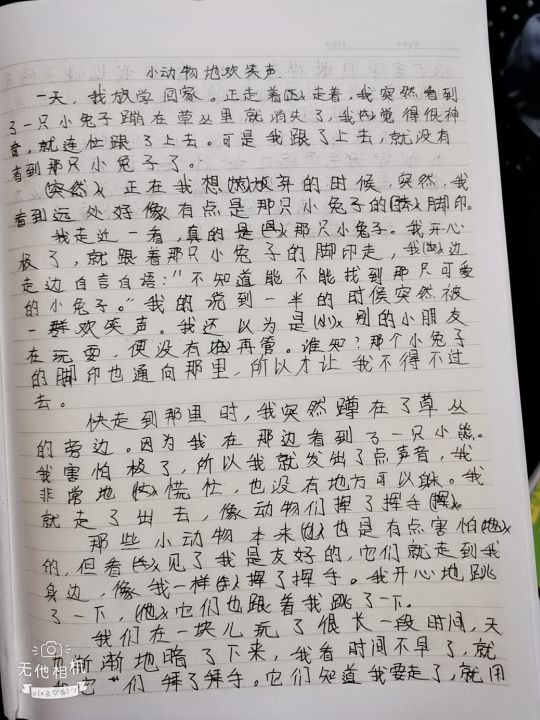 Date Page
小动物地欢笑声
一天，我放学回家。正走着走着，我突然看到
了一只小兔子蹦在草丛里就消失了，我觉得很神
奇，就连忙跟了上去。可是我跟了上去，就没有
看到那只小兔子了。
(突然)正在我想放弃的时候，突然，我
看到远处好像有点是那只小兔子的脚印。
我走近一看，真的是那只小兔子。我开心
极了，就跟着那只小兔子的脚印走，我边
走边自言自语："不知道能不能找到那只可爱
的小兔子。"我的说到一半的时候突然被
一群欢笑声。我还以为是别的小朋友
在玩耍，便没有再管。谁知？那个小兔子
的脚印也通向那里，所以才让我不得不过
去。
快走到那里时，我突然蹲在了草丛
的旁边。因为我在那边看到了一只小熊。
我害怕极了，所以我就发出了点声音，我
非常地慌忙，也没有地方可以躲。我
就走了出去，像动物们挥了挥手。
那些小动物本来也是有点害怕
的，但看见了我是友好的，它们就走到我
身边，像我一样挥了挥手。我开心地跳
了一下，它们也跟着我跳了一下。
我们在一块儿玩了很长一段时间，天
渐渐地暗了下来，我看时间不早了，就
们挥了挥手。它们知道我要走了，就用
无他相机